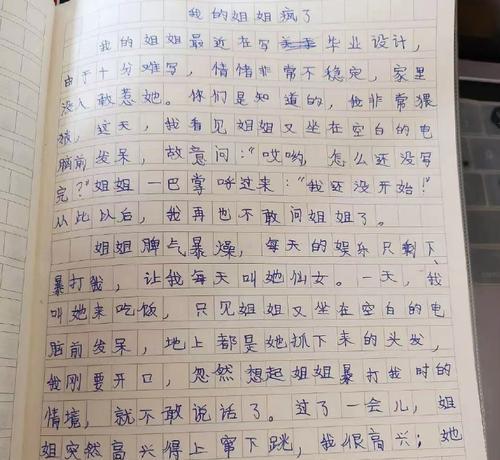 我的姐姐疯了
我的姐姐最近在写毕业设计，
由于十分难写，情绪非常不稳定，家里
没人敢惹她。你们是知道的，他非常猥
琐，这天，我看见姐姐又坐在空白的电
脑前发呆，故意问：“哎哟，怎么还没写
完？”姐姐一巴掌呼过来：“我还没开始！”
从此以后，我再也不敢问姐姐了。
姐姐脾气暴燥，每天的娱乐只剩下
暴打我，让我每天叫她仙女。一天，我
叫她来吃饭，只见姐姐又坐在空白的电
脑前发呆，地上都是她抓下来的头发，
我刚要开口，忽然想起姐姐暴打我时的
情境，就不敢说话了。过了一会儿，姐
姐突然高兴得上窜下跳，我很高兴；她